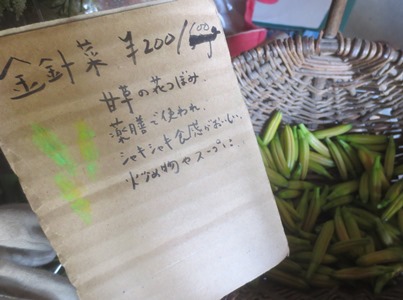 金針菜 ¥200/100g
甘草の花つぼみ
薬膳で使われ、
シャキシャキ食感がおいしい。
炒め物やスープに…